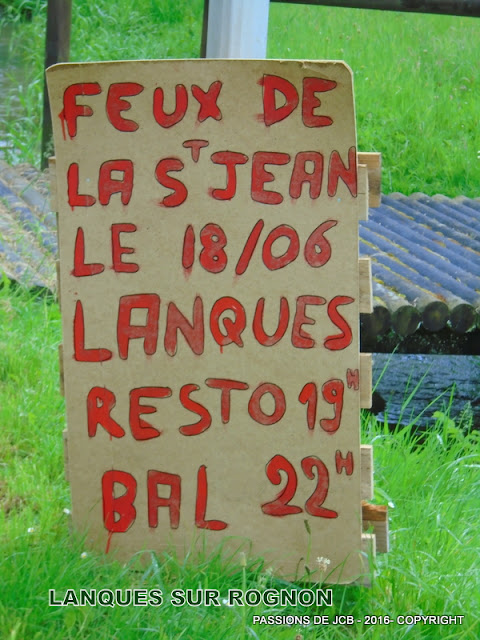 FEUX DE
LA ST JEAN
LE 18/06
LANQUES
RESTO 19H
BAL 22H
LANQUES SUR ROGNON
PASSIONS DE JCB - 2016- COPYRIGHT